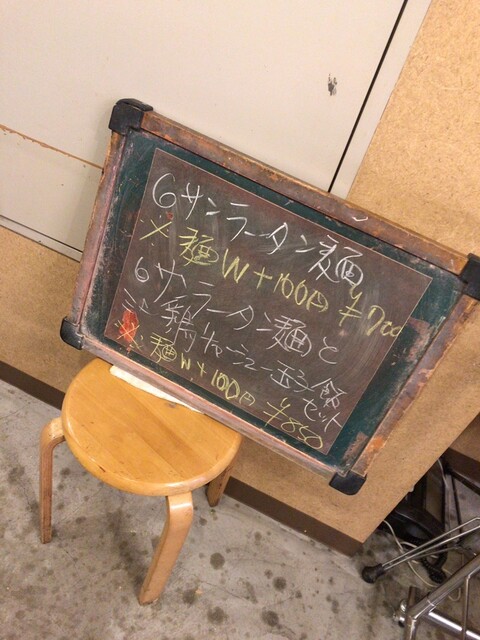 6サンラータン麺
※麺W+100円 ¥700
6サンラータン麺と
ミニ鶏チャーシュー玉子飯
セット
※麺W+100円 ¥850